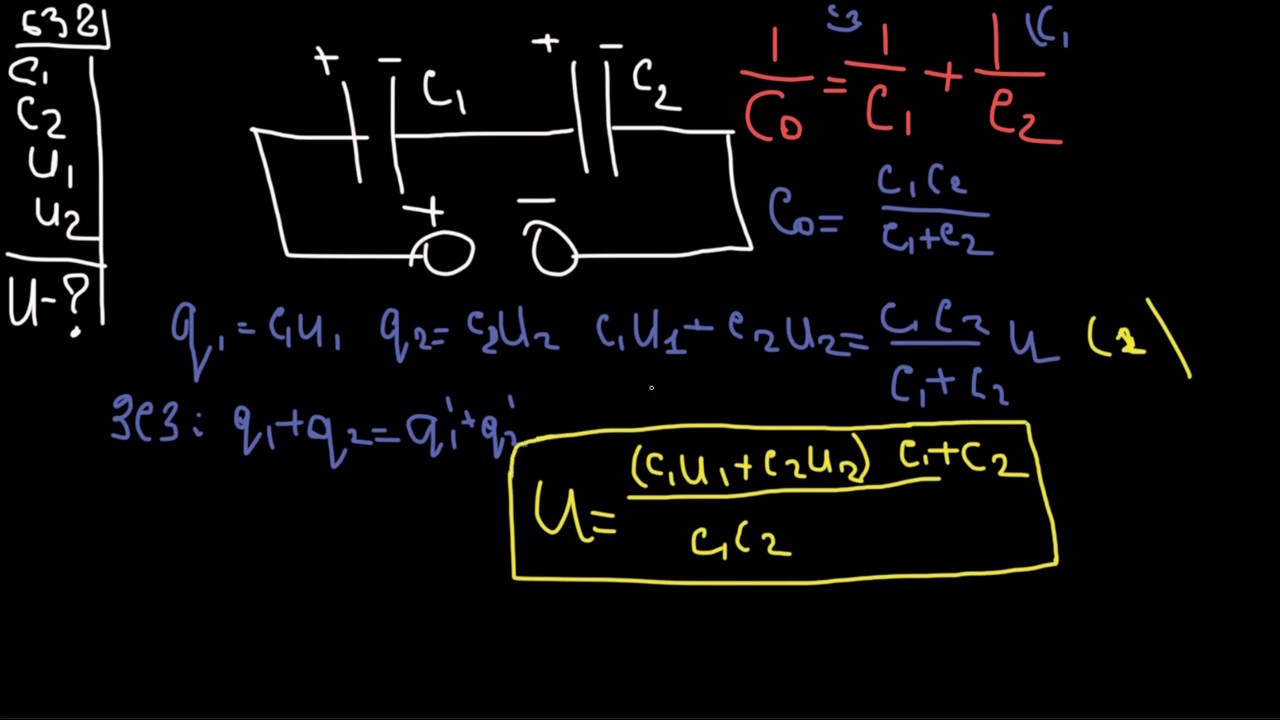 632
C₁
C₂
U₁
U₂
U-?
+ - C₁ + - C₂
+ -
1/C₀ = 1/C₁ + 1/C₂
C₀ = C₁C₂/C₁+C₂
q₁ = C₁U₁ q₂ = C₂U₂ C₁U₁ + C₂U₂ = C₁C₂/C₁+C₂ U
ЗСЗ: q₁+q₂ = q₁'+q₂'
U = (C₁U₁+C₂U₂) C₁+C₂/C₁C₂